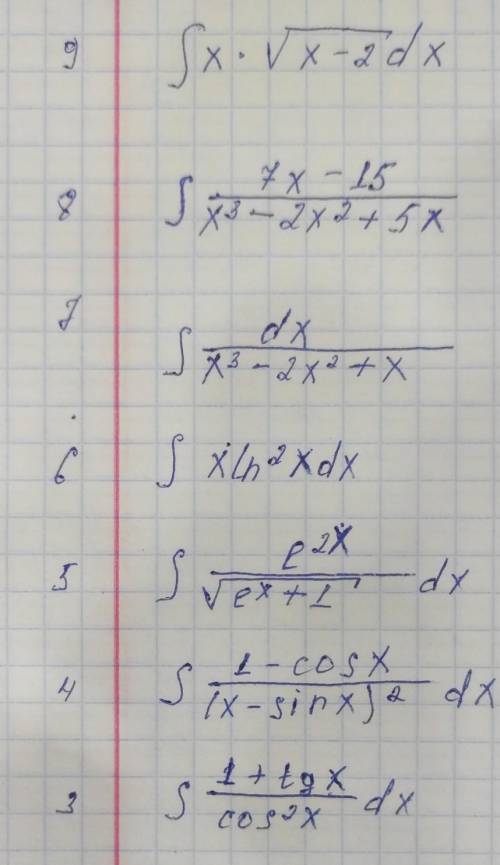 9 ∫ x · √(x − 2) dx
8 ∫ (7x − 15)/(x³ − 2x² + 5x)
7 ∫ dx/(x³ − 2x² + x)
6 ∫ x ln² x dx
5 ∫ e^(2x)/√(e^x + 1) dx
4 ∫ (1 − cos x)/(x − sin x)² dx
3 ∫ (1 + tg x)/(cos² x) dx